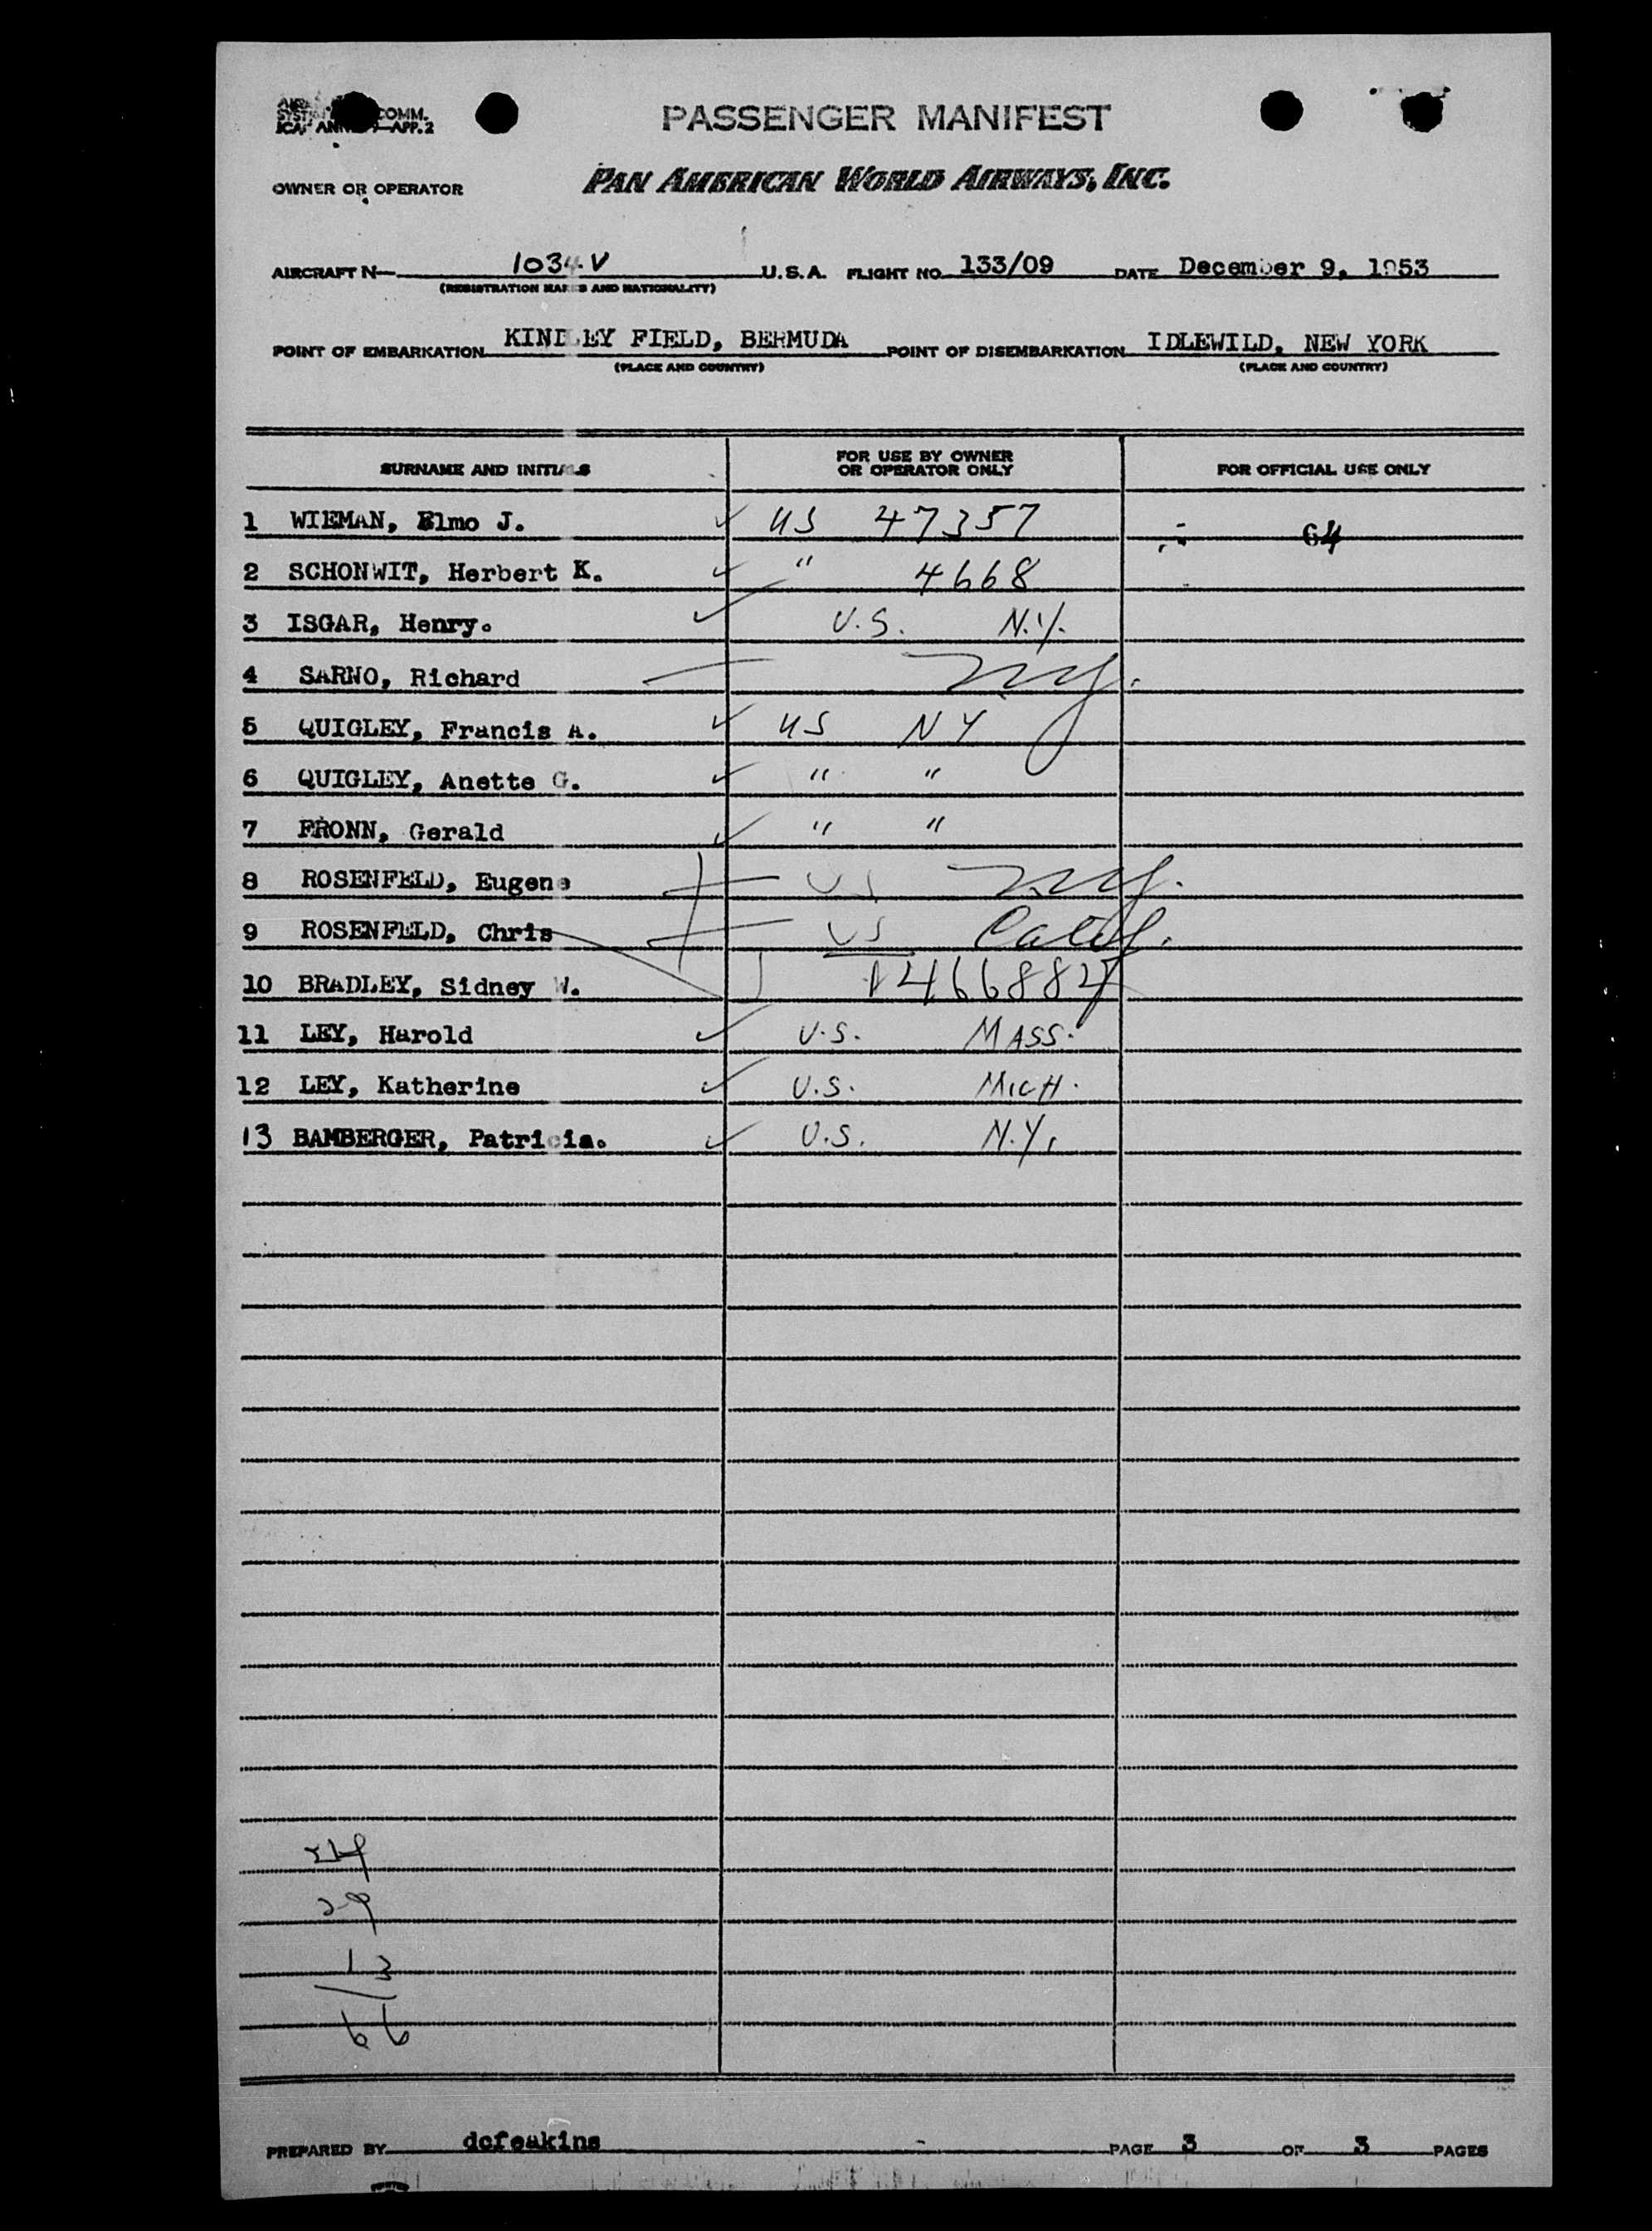 COMM.
APP. 2
PASSENGER MANIFEST
OWNER OR OPERATOR PAN AMERICAN WORLD AIRWAYS, INC.
AIRCRAFT N 1034V U.S.A. FLIGHT NO. 133/09 DATE December 9, 1953
(REGISTRATION MARKS AND NATIONALITY)
POINT OF EMBARKATION KINDLEY FIELD, BERMUDA POINT OF DISEMBARKATION IDLEWILD, NEW YORK
(PLACE AND COUNTRY) (PLACE AND COUNTRY)
SURNAME AND INITIALS FOR USE BY OWNER OR OPERATOR ONLY FOR OFFICIAL USE ONLY
1 WIEMAN, Elmo J. ✓ US 47357 64
2 SCHONWIT, Herbert K. ✓ " 4668
3 ISGAR, Henry. ✓ U.S. N.Y.
4 SARNO, Richard NY.
5 QUIGLEY, Francis A. ✓ US NY
6 QUIGLEY, Anette G. ✓ " "
7 FRONN, Gerald ✓ " "
8 ROSENFELD, Eugene US NY.
9 ROSENFELD, Chris US Calif.
10 BRADLEY, Sidney W.
11 LEY, Harold ✓ U.S. MASS.
12 LEY, Katherine ✓ U.S. MICH.
13 BAMBERGER, Patricia. ✓ U.S. N.Y.
24
29
13
66
PREPARED BY dcfeakins PAGE 3 OF 3 PAGES